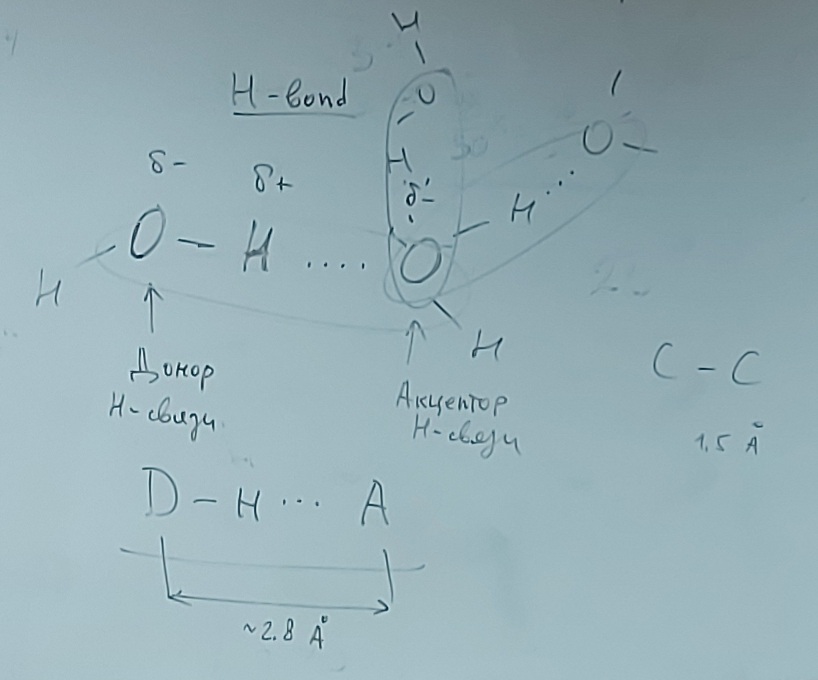 H
H-bond
O
O
δ-
δ+
H
δ-
H
O - H .... O
H
H
Донор
Н-связи
Акцептор
Н-связи
C - C
1.5 Å
D - H ... A
~2.8 Å